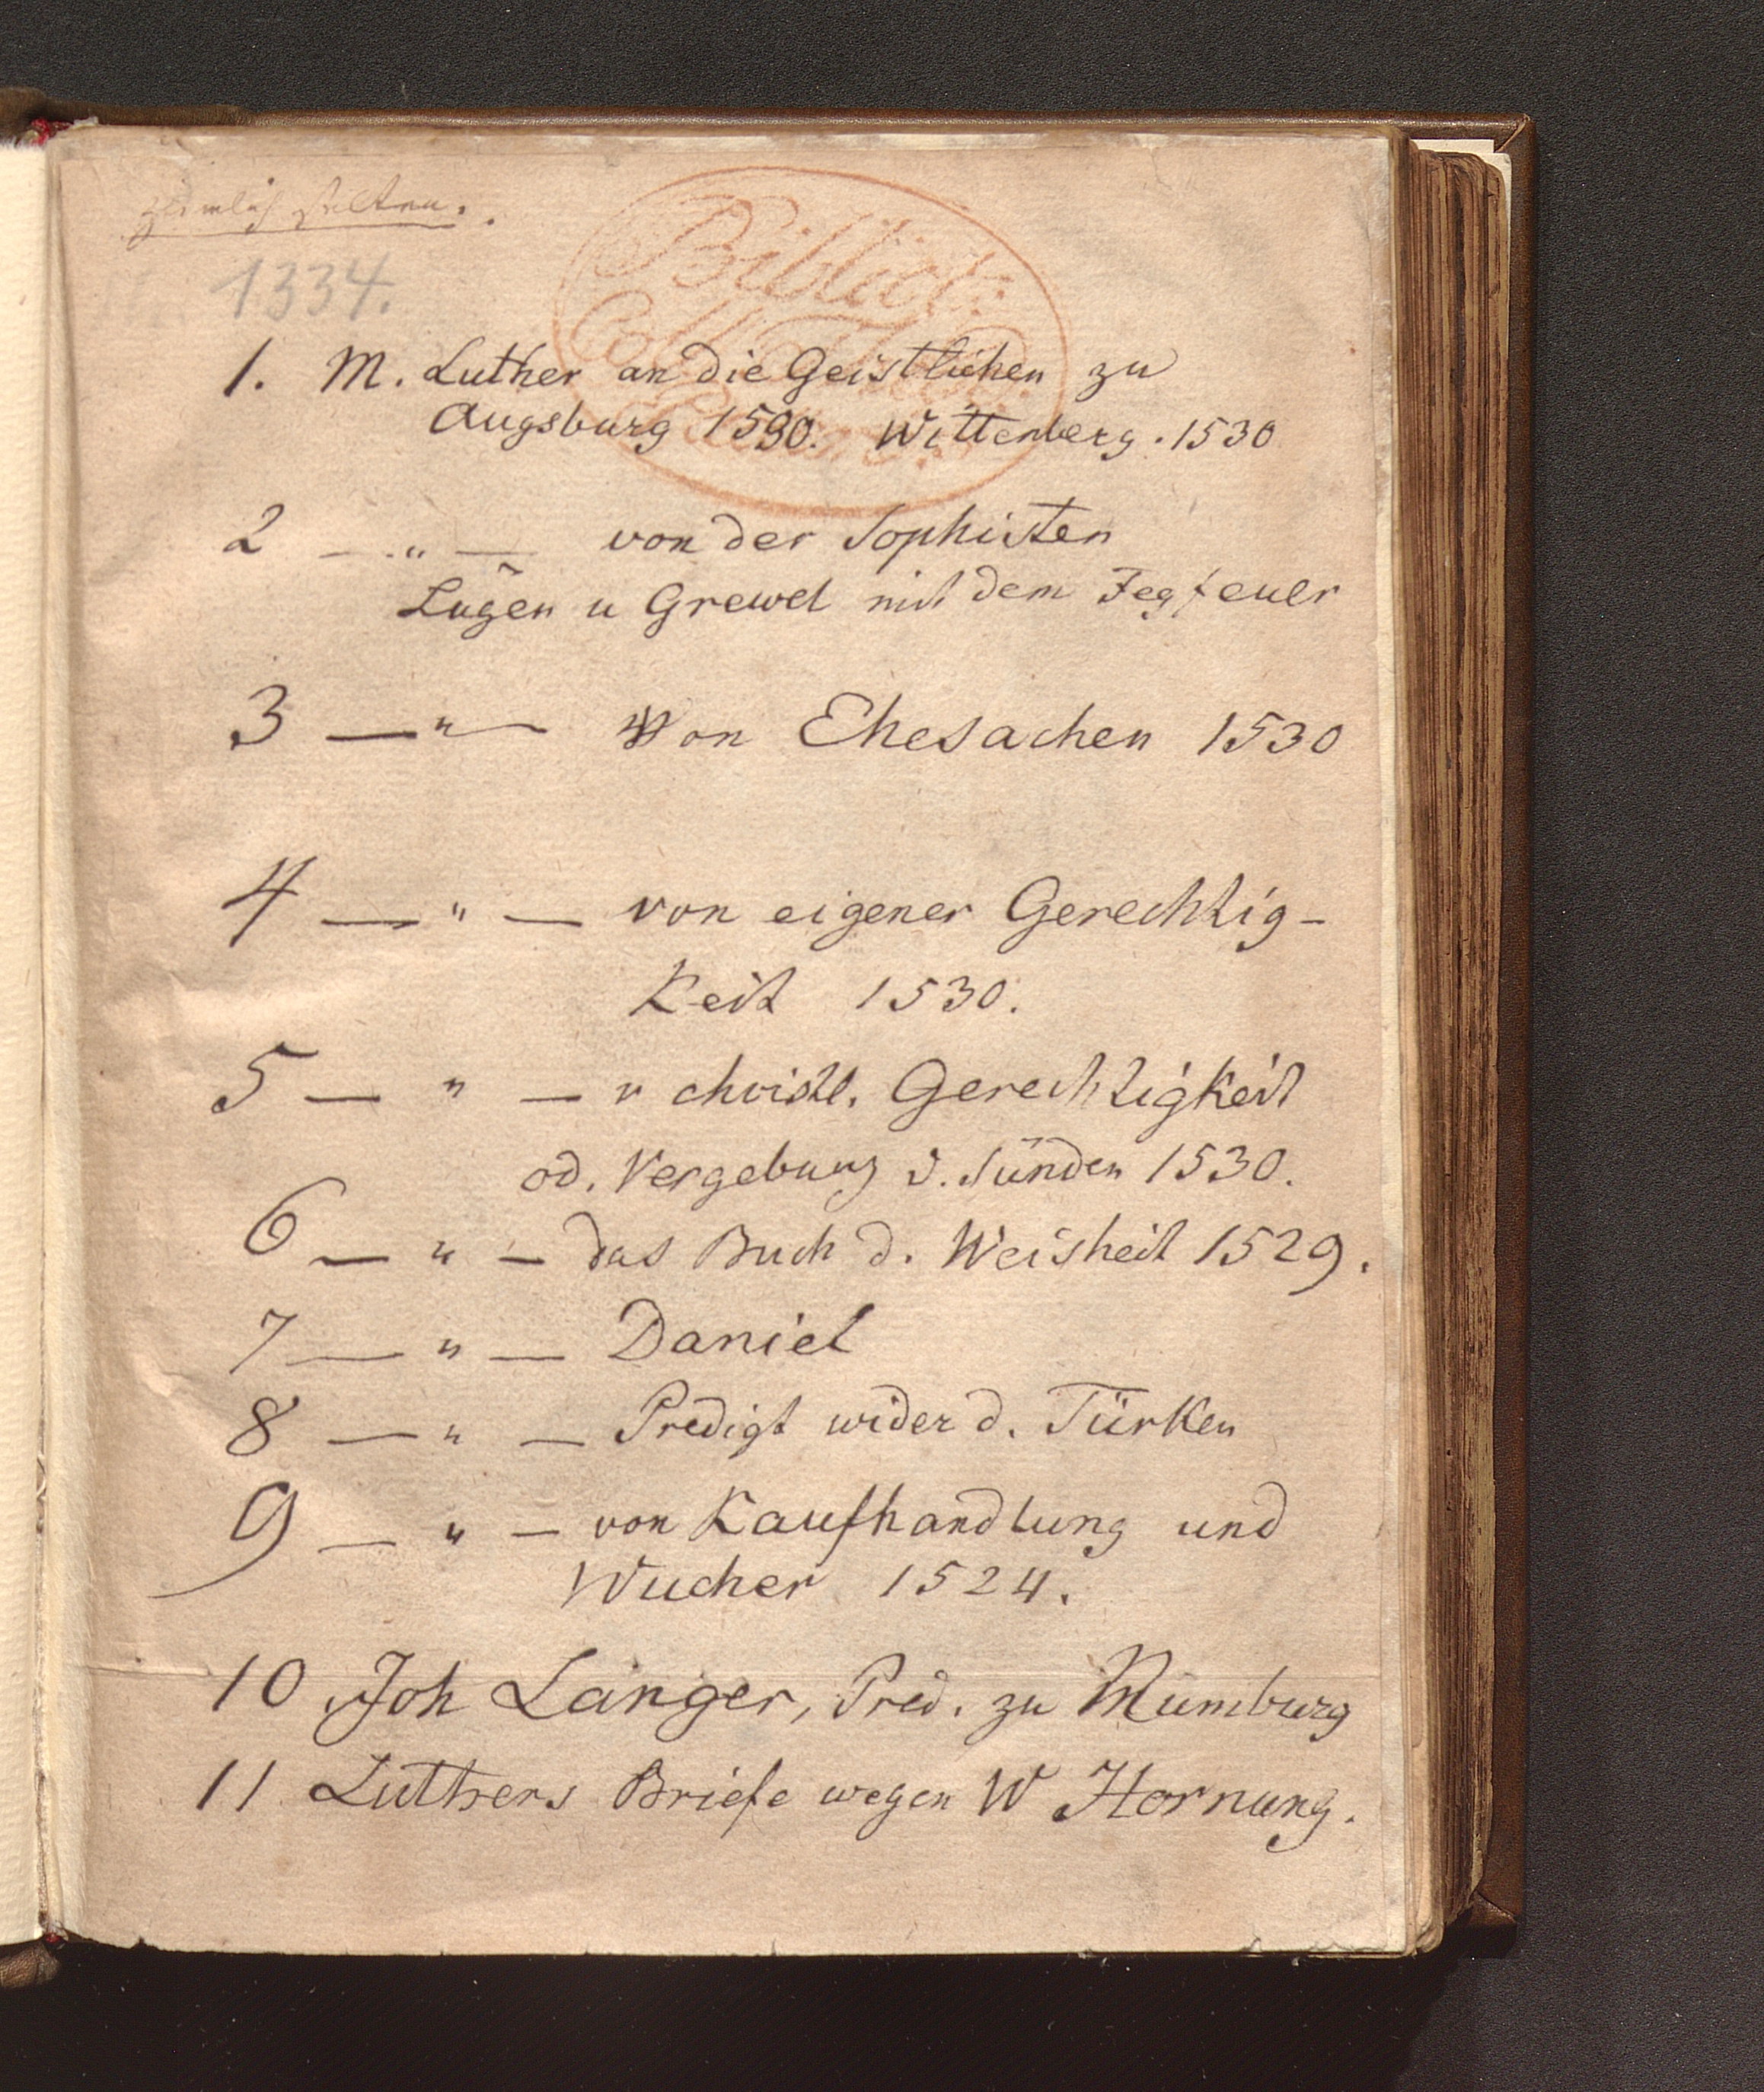 ziemlich selten.
1334.
Biblioth:
1. M. Luther an die Geistlichen zu
Augsburg 1530. Wittenberg. 1530
2 — " — von der Sophisten
Lügen u Grewel mit dem Fegfeuer
3 — " — Von Ehesachen 1530
4 — " — von eigener Gerechtig-
Keit 1530.
5 — " — v christl. GerechtigKeit
od. Vergebung d. Sünden 1530.
6 — " — das Buch d. Weisheit 1529.
7 — " — Daniel
8 — " — Predigt wider d. TürKen
9 — " — von Kaufhandlung und
Wucher 1524.
10 Joh Langer, Pred. zu Numburg
11 Luthers Briefe wegen W Hornung.